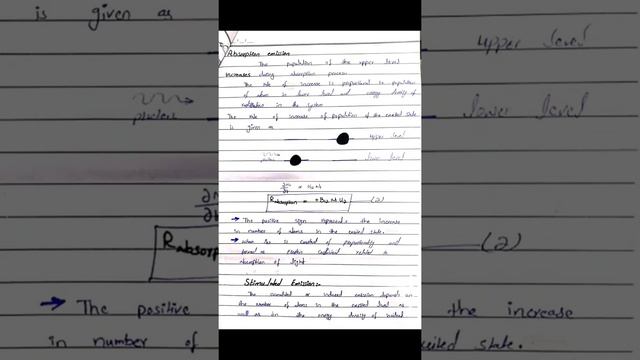 Absorption emission
The population of the upper level
increases during absorption process
The rate of increase is proportional to population
of atom in lower level and energy density of
radiation in the system
The rate of increase of population of the excited state
is given as
upper level
photon
lower level
R absorption = +B₁₂ N₁ U
(2)
→ The positive sign represents the increase
in number of atoms in the excited state.
→ when B₁₂ is constant of proportionality and
known as einstein coefficient related to
absorption of light
Stimulated Emission:-
The stimulated or induced emission depends on
the number of atoms in the excited level as
well as on the energy density of incident